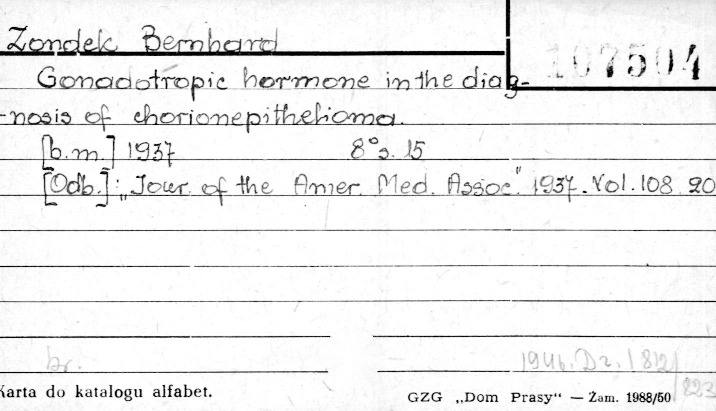 Zondek Bernhard
107504
Gonadotropic hormone in the diag-
-nosis of chorionepithelioma.
[b.m.] 1937 8° s. 15
[Odb.]: „Jour. of the Amer. Med. Assoc." 1937. Vol. 108 20
br.
1946. Dz. 1812/
/823
Karta do katalogu alfabet.
GZG „Dom Prasy" — Zam. 1988/50